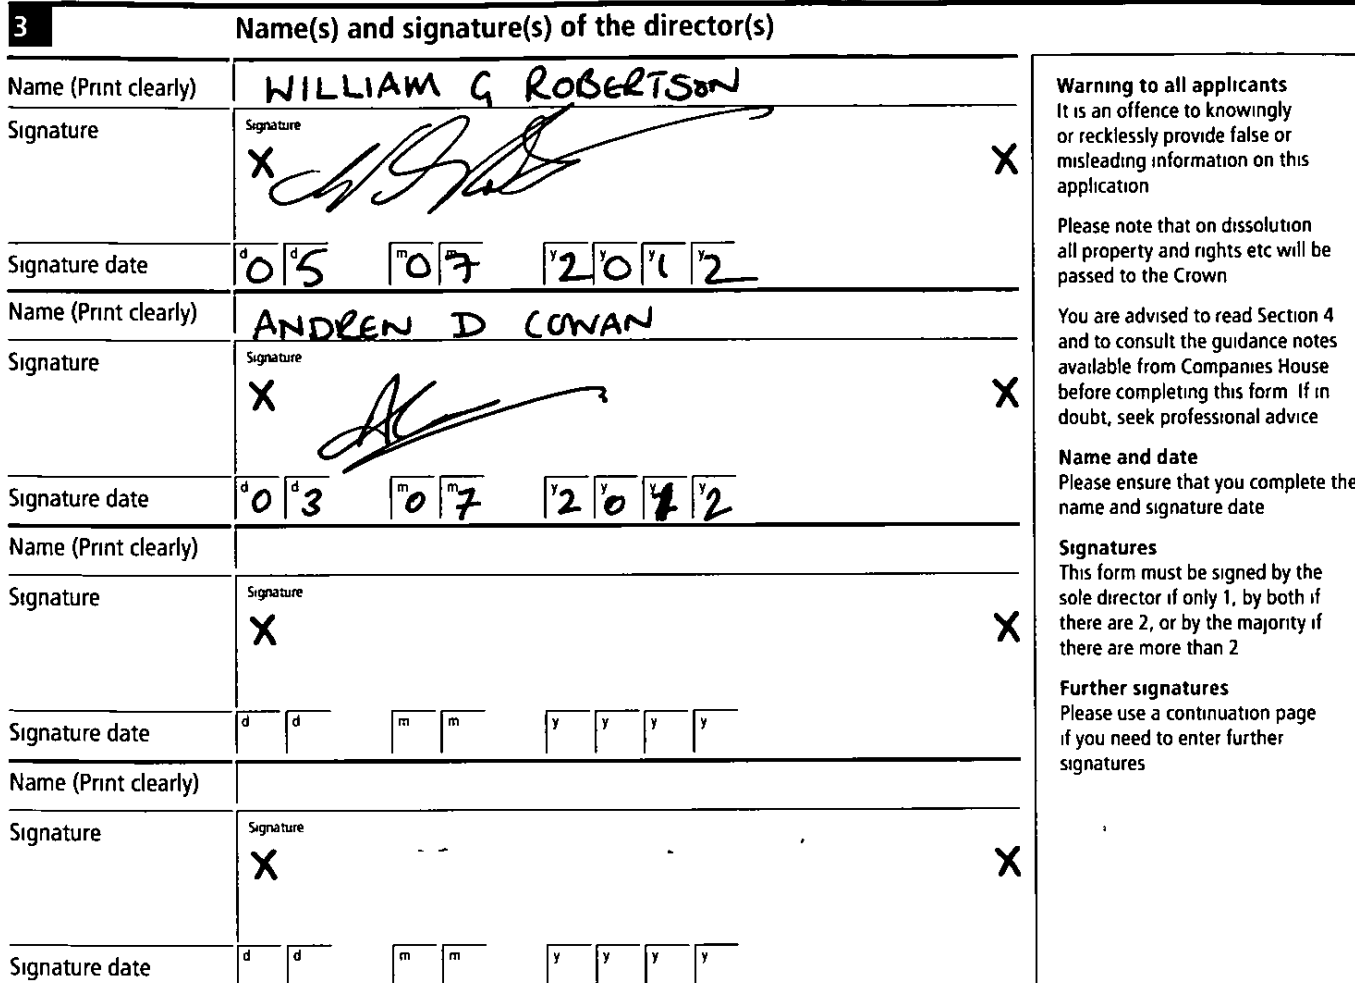 3 Name(s) and signature(s) of the director(s)
Name (Print clearly) WILLIAM G ROBERTSON
Signature Signature
X X
Signature date d0 d5 m0 m7 y2 y0 y1 y2
Name (Print clearly) ANDREW D COWAN
Signature Signature
X X
Signature date d0 d3 m0 m7 y2 y0 y1 y2
Name (Print clearly)
Signature Signature
X X
Signature date d d m m y y y y
Name (Print clearly)
Signature Signature
X X
Signature date d d m m y y y y
Warning to all applicants
It is an offence to knowingly
or recklessly provide false or
misleading information on this
application
Please note that on dissolution
all property and rights etc will be
passed to the Crown
You are advised to read Section 4
and to consult the guidance notes
available from Companies House
before completing this form If in
doubt, seek professional advice
Name and date
Please ensure that you complete the
name and signature date
Signatures
This form must be signed by the
sole director if only 1, by both if
there are 2, or by the majority if
there are more than 2
Further signatures
Please use a continuation page
if you need to enter further
signatures